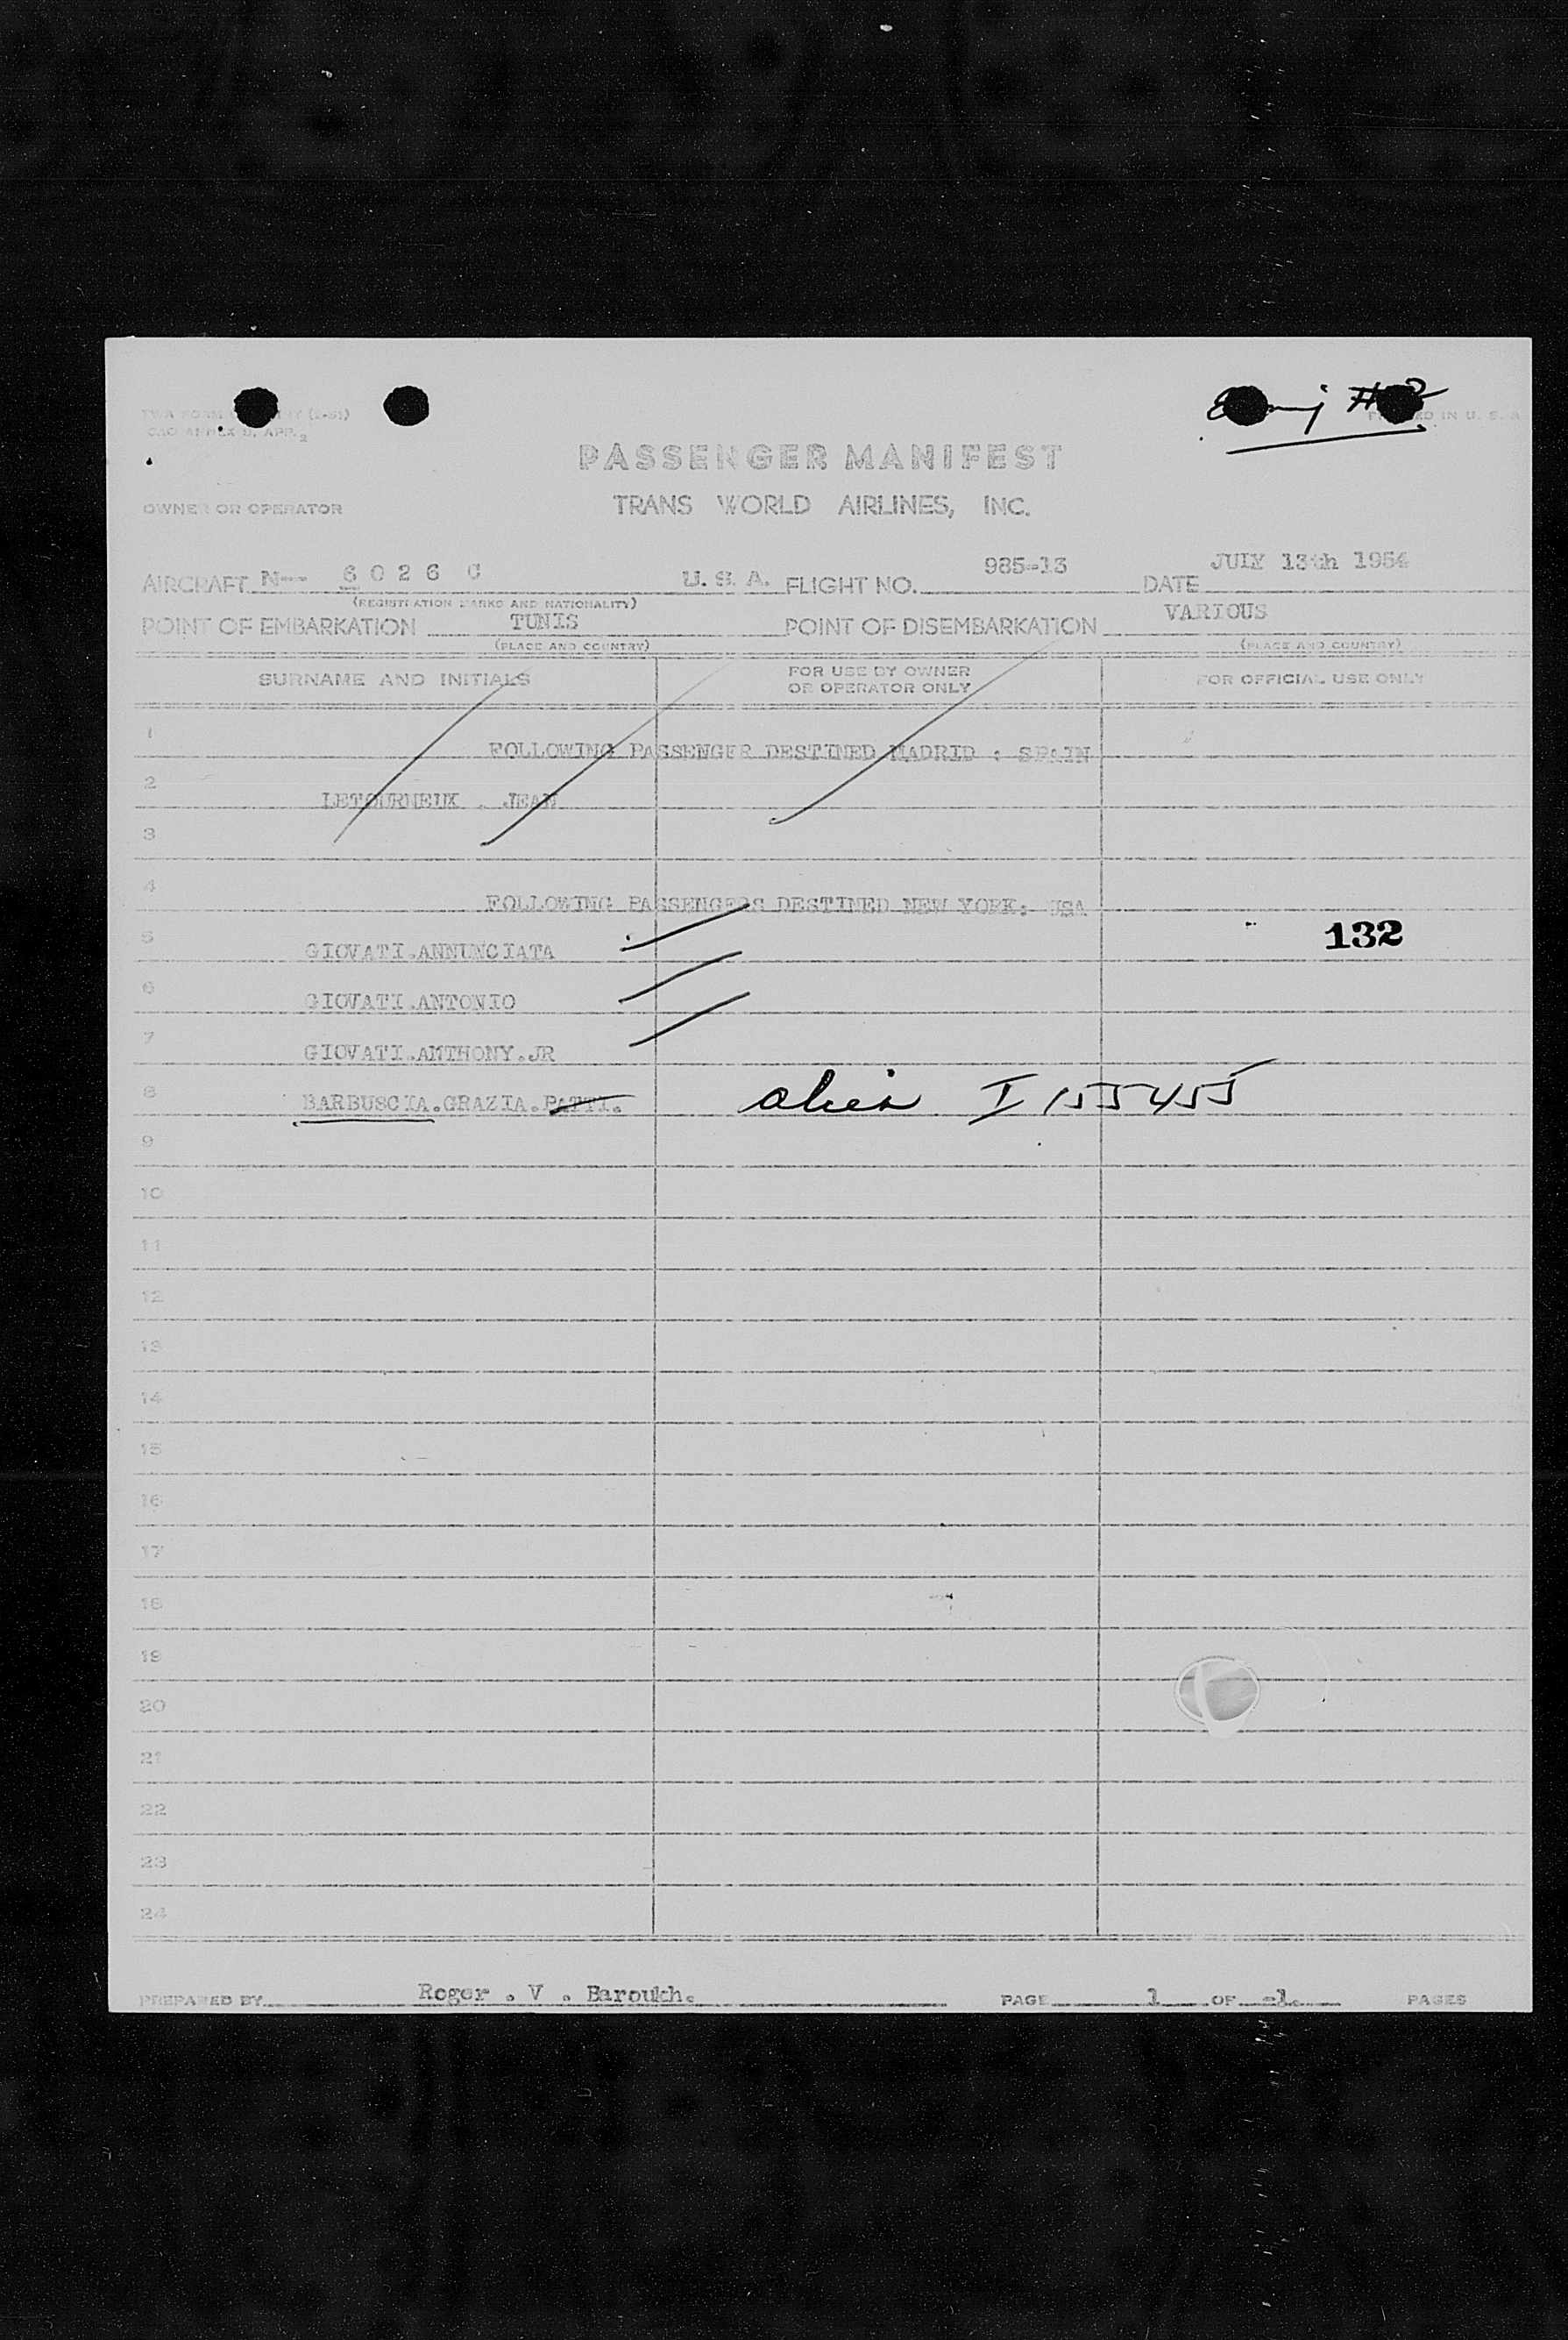 TWA FORM (2-51)
ICAO ANNEX 9, APP. 2
#
IN U. S. A.
PASSENGER MANIFEST
OWNER OR OPERATOR TRANS WORLD AIRLINES, INC.
AIRCRAFT N--- 6 0 2 6 C U. S. A. FLIGHT NO. 985-13 DATE JULY 13th 1954
(REGISTRATION MARKS AND NATIONALITY)
POINT OF EMBARKATION TUNIS POINT OF DISEMBARKATION VARIOUS
(PLACE AND COUNTRY) (PLACE AND COUNTRY)
SURNAME AND INITIALS FOR USE BY OWNER OR OPERATOR ONLY FOR OFFICIAL USE ONLY
1 FOLLOWING PASSENGER DESTINED MADRID : SPAIN
2 LETOURNEUX . JEAN
3
4 FOLLOWING PASSENGERS DESTINED NEW YORK: USA
5 GIOVATI.ANNUNCIATA 132
6 GIOVATI.ANTONIO
7 GIOVATI.ANTHONY.JR
8 BARBUSCIA.GRAZIA.PATTI. alien I 155455
9
10
11
12
13
14
15
16
17
18
19
20
21
22
23
24
PREPARED BY Roger . V . Baroukh. PAGE 1 OF -1. PAGES